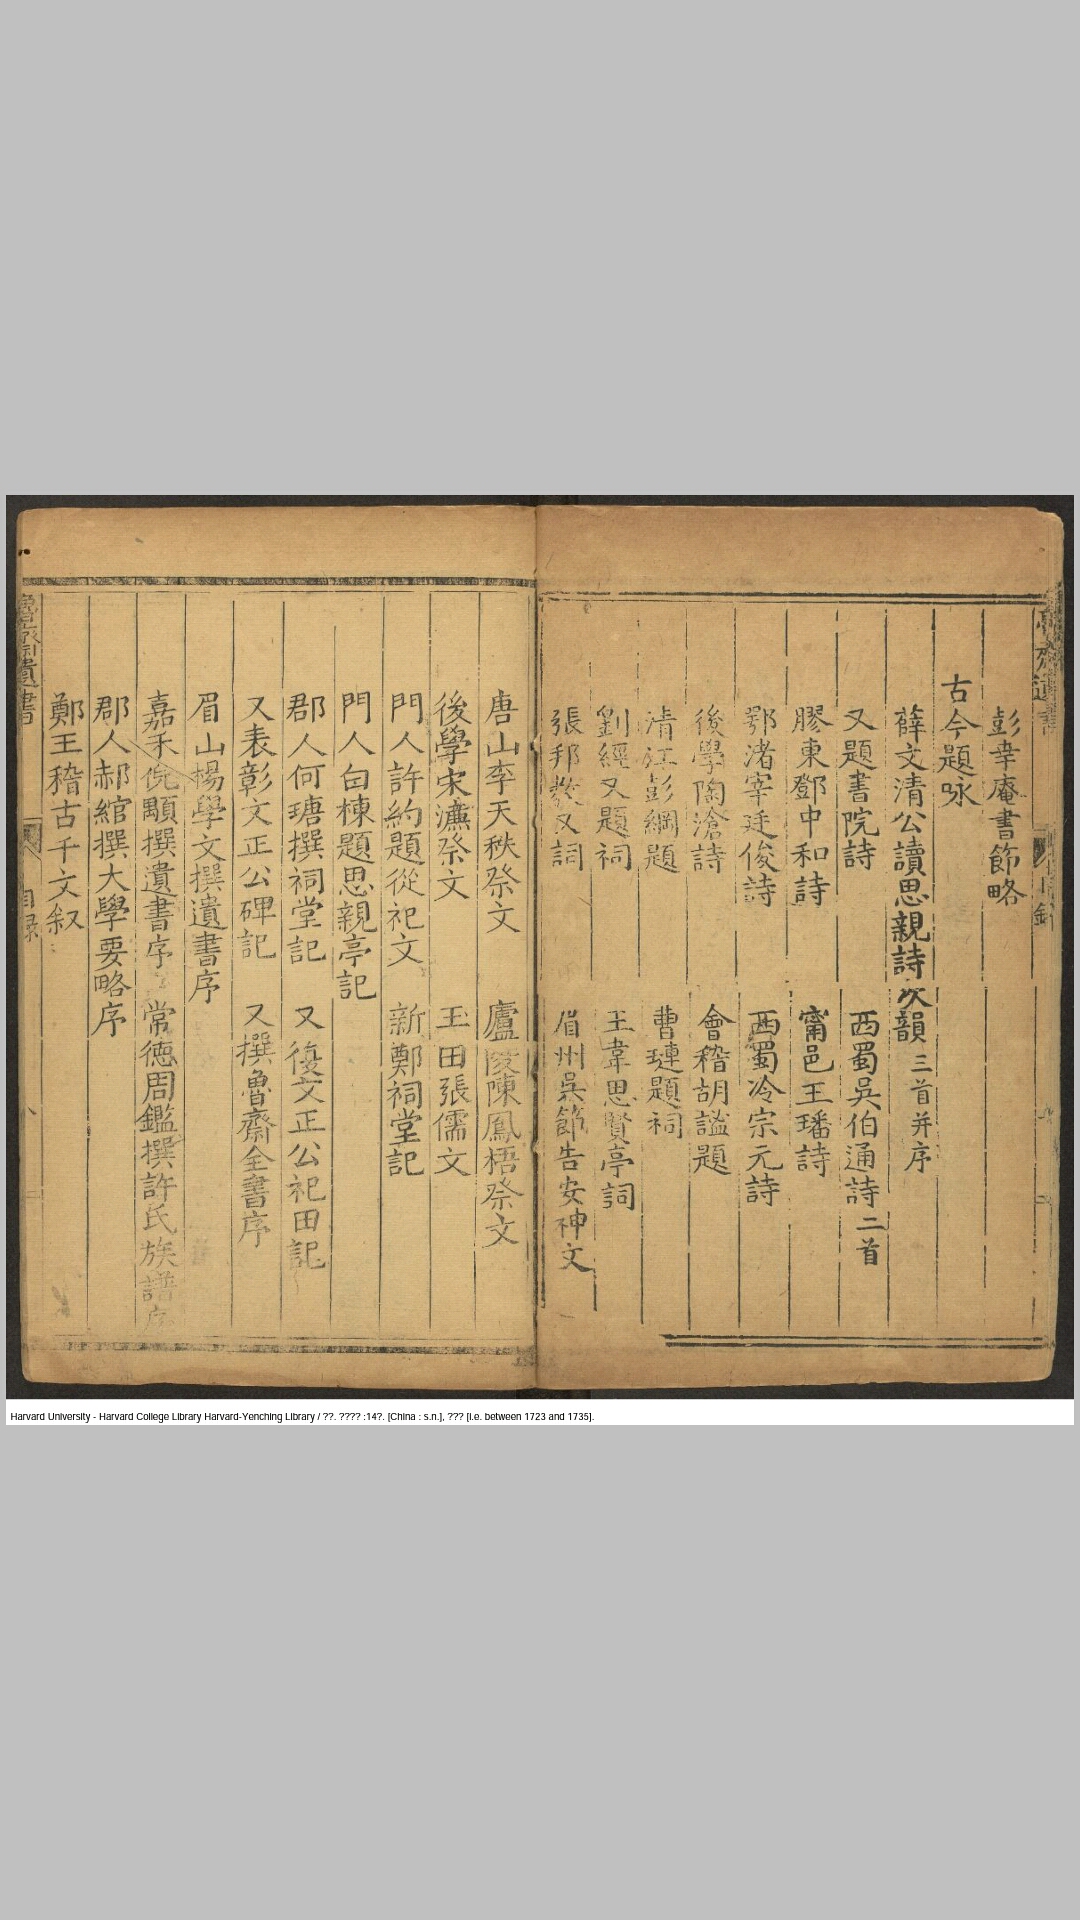 彭幸庵書節略
古今題咏
薛文清公讀思親詩次韻三首并序
又題書院詩 西蜀吳伯通詩二首
膠東鄧中和詩 甯邑王璠詩
鄂渚宰廷俊詩 西蜀冷宗元詩
後學陶滄詩 會稽胡謐題
清江彭綱題 曹璉題祠
劉經又題祠 王韋思賢亭詞
張邦教又詞 眉州吳節告安神文
唐山李天秩祭文 廬陵陳鳳梧祭文
後學宋濂祭文 玉田張儒文
門人許約題從祀文 新鄭祠堂記
門人白棟題思親亭記
郡人何瑭撰祠堂記 又復文正公祀田記
又表彰文正公碑記 又撰魯齋全書序
眉山楊學文撰遺書序
嘉禾倪顒撰遺書序 常德周鑑撰許氏族譜序
郡人郝綰撰大學要略序
鄭王稽古千文叙
魯齋遺書
目録
Harvard University - Harvard College Library Harvard-Yenching Library / ??. ???? :14?. [China : s.n.], ??? [i.e. between 1723 and 1735].